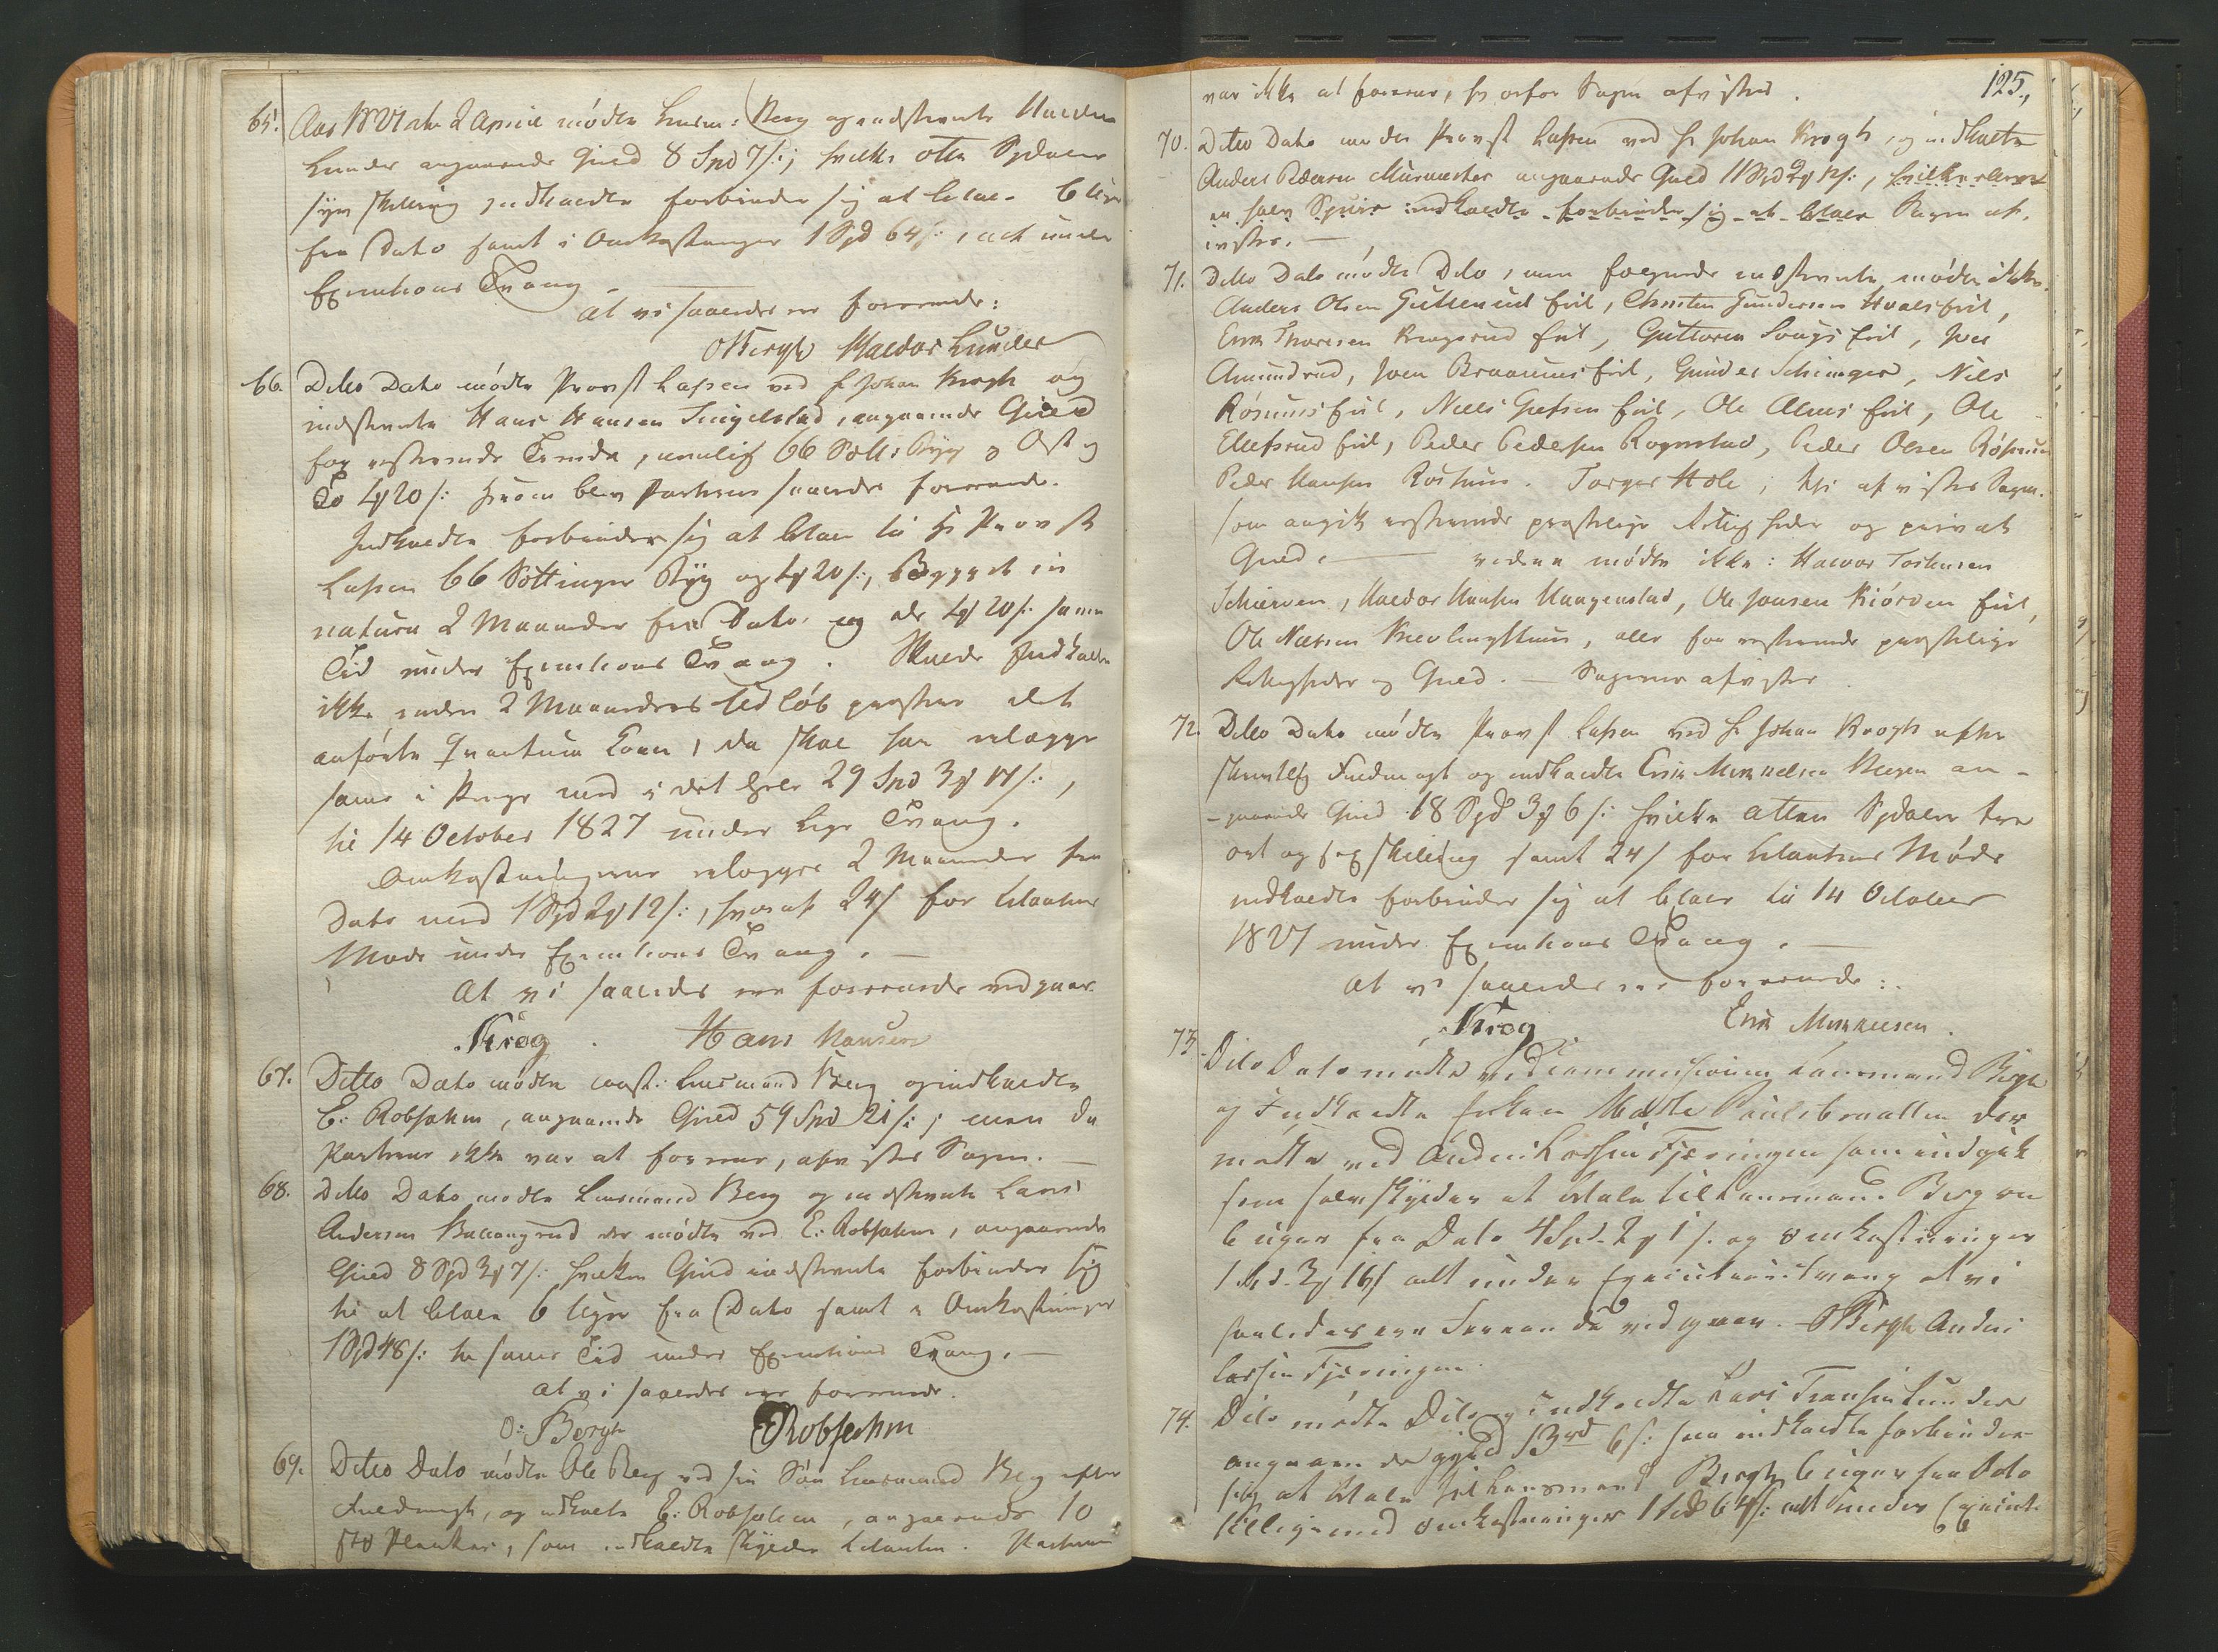 65. Aar 1827 den 2 April mødte Lensm: Berg og indstevnte Haldor
Lunder angaaende Gield 8 Spd 7 s:; hvilke otte Spdaler
syv skilling Indkaldte forbinder sig at betale 6 Uger
fra Dato samt i Omkostninger 1 Spd 64 s:, alt under
Executions Tvang.
At vi saaledes ere forenede:
OBergh Haldor Lunder
66. Ditto Dato mødte Provst Lassen ved Hr Johan Krogh og
indstevnte Hans Hansen Tingelstad, angaaende Gield
for resterende Tiende, nemlig 66 Sott: Byg og Ost og
20 s: hvorom blev Parterne saaledes forenede.
Indkaldte forbinder sig at betale til Hr Provst
Lassen 66 Sottinger Byg og 20 s:, Bygget in
natura 2 Maaneder fra Dato og de 20 s: samme
Tid under Executions Tvang. Skulde Indkaldte
ikke inden 2 Maaneders Udløb præstere det
anførte Qvantum Korn, da skal han erlægge
samme i Penge med i det hele 29 Spd 3 17 s:,
til 14 October 1827 under lige Tvang.
Omkostningerne erlægges 2 Maaneder fra
Dato med 1 Spd 2 12 s:, hvoraf 24 s for Klagerens
Møde under Executions Tvang.
At vi saaledes ere forenede vedgaar.
Krog. Hans Hansen
67. Ditto Dato mødte const: Lensmand Berg og indkaldte
E: Robsahm, angaaende Gield 59 Spd 21 s:; men da
Parterne ikke var at forene, afvistes Sagen.
68. Ditto Dato mødte Lensmand Berg og indstevnte Lars
Andersen der mødte ved E: Robsahm, angaaende
Gield 8 Spd 3 7 s: hvilken Gield indstevnte forbinder sig
til at betale 6 Uger fra Dato samt i Omkostninger
1 Spd 48 s: til samme Tid under Executions Tvang.
At vi saaledes ere forenede.
O: Bergh ERobsahm
69. Ditto Dato mødte Ole Berg ved sin Søn Lensmand Berg efter
Fuldmagt, og indkaldte E: Robsahm, angaaende 10
Planker, som indkaldte skylder Parterne
125.
var ikke at forene, hvorfor Sagen afvistes.
70. Ditto Dato mødte Provst Lassen ved Hr Johan Krogh, og indkaldte
Anders Pedersen Muurmester angaaende Gield 11 Spd 2 12 s:, hvilke
indkaldte forbinder sig at betale Sagen af-
vistes.
71. Ditto Dato mødte Dito, men følgende indstevnte mødte ikke.
Anders Olsen Gulleniud Eiet, Christen Gundersen Hvals Eiet,
Erik Thoresen Eiet, Guttorm Sougs Eiet, Joen
Amundrud, Joen Braaums Eiet, Gunder Schinger, Niels
Røsums Eiet, Niels Eiet, Ole Alms Eiet, Ole
Ellefsrud Eiet, Peder Pedersen Rognstad, Peder Olsen Røssum
Peder Hansen Røssum. Torger Hole; thi afvistes Sagen.
som angik resterende præstelige Rettigheder og privat
Gield. videre mødte ikke: Halvor Torstensen
Schierven, Haldor Hansen Haagenstad, Ole Jonsen Kiørven Eiet,
Ole Nielsen alle for resterende præstelige
Rettigheder og Gield. Sagerne afvistes
72. Ditto Dato mødte Provst Lassen ved Hr Johan Krogh efter
skriftlig Fuldmagt og indkaldte Erik Mikkelsen an-
gaaende Gield 18 Spd 3 6 s: hvilke atten Spdaler tre
ort og sex skilling samt 24 s for Klagerens Møde
indkaldte forbinder sig at betale til 14 October
1827 under Executions Tvang.
At vi saaledes ere forenede:
Krog Erik Mikkelsen.
73. Dito Dato mødte ved Lænsmand Bergh
og Indkaldte der
mødte ved Anders Larsen Fjeringen som indgik
som selvskylder at betale til Lænsmand Berg om
6 uger fra Dato 4 Spd. 2 1 s. og omkostninger
1 Spd. 3 16 s alt under Executionstvang at vi
saaledes ere Forenede vedgaaer. OBergh Anders
Larsen Fjeringen.
74. Dito mødte Dito og indkaldte Lars Fransen Lunder
angaaende gjeld 13 6 s: saa indkaldte forbinder
sig at betale til Lænsmand Bergh 6 uger fra Dato
tilligemed omkostninger 1 Spd 64 s: alt under Executi